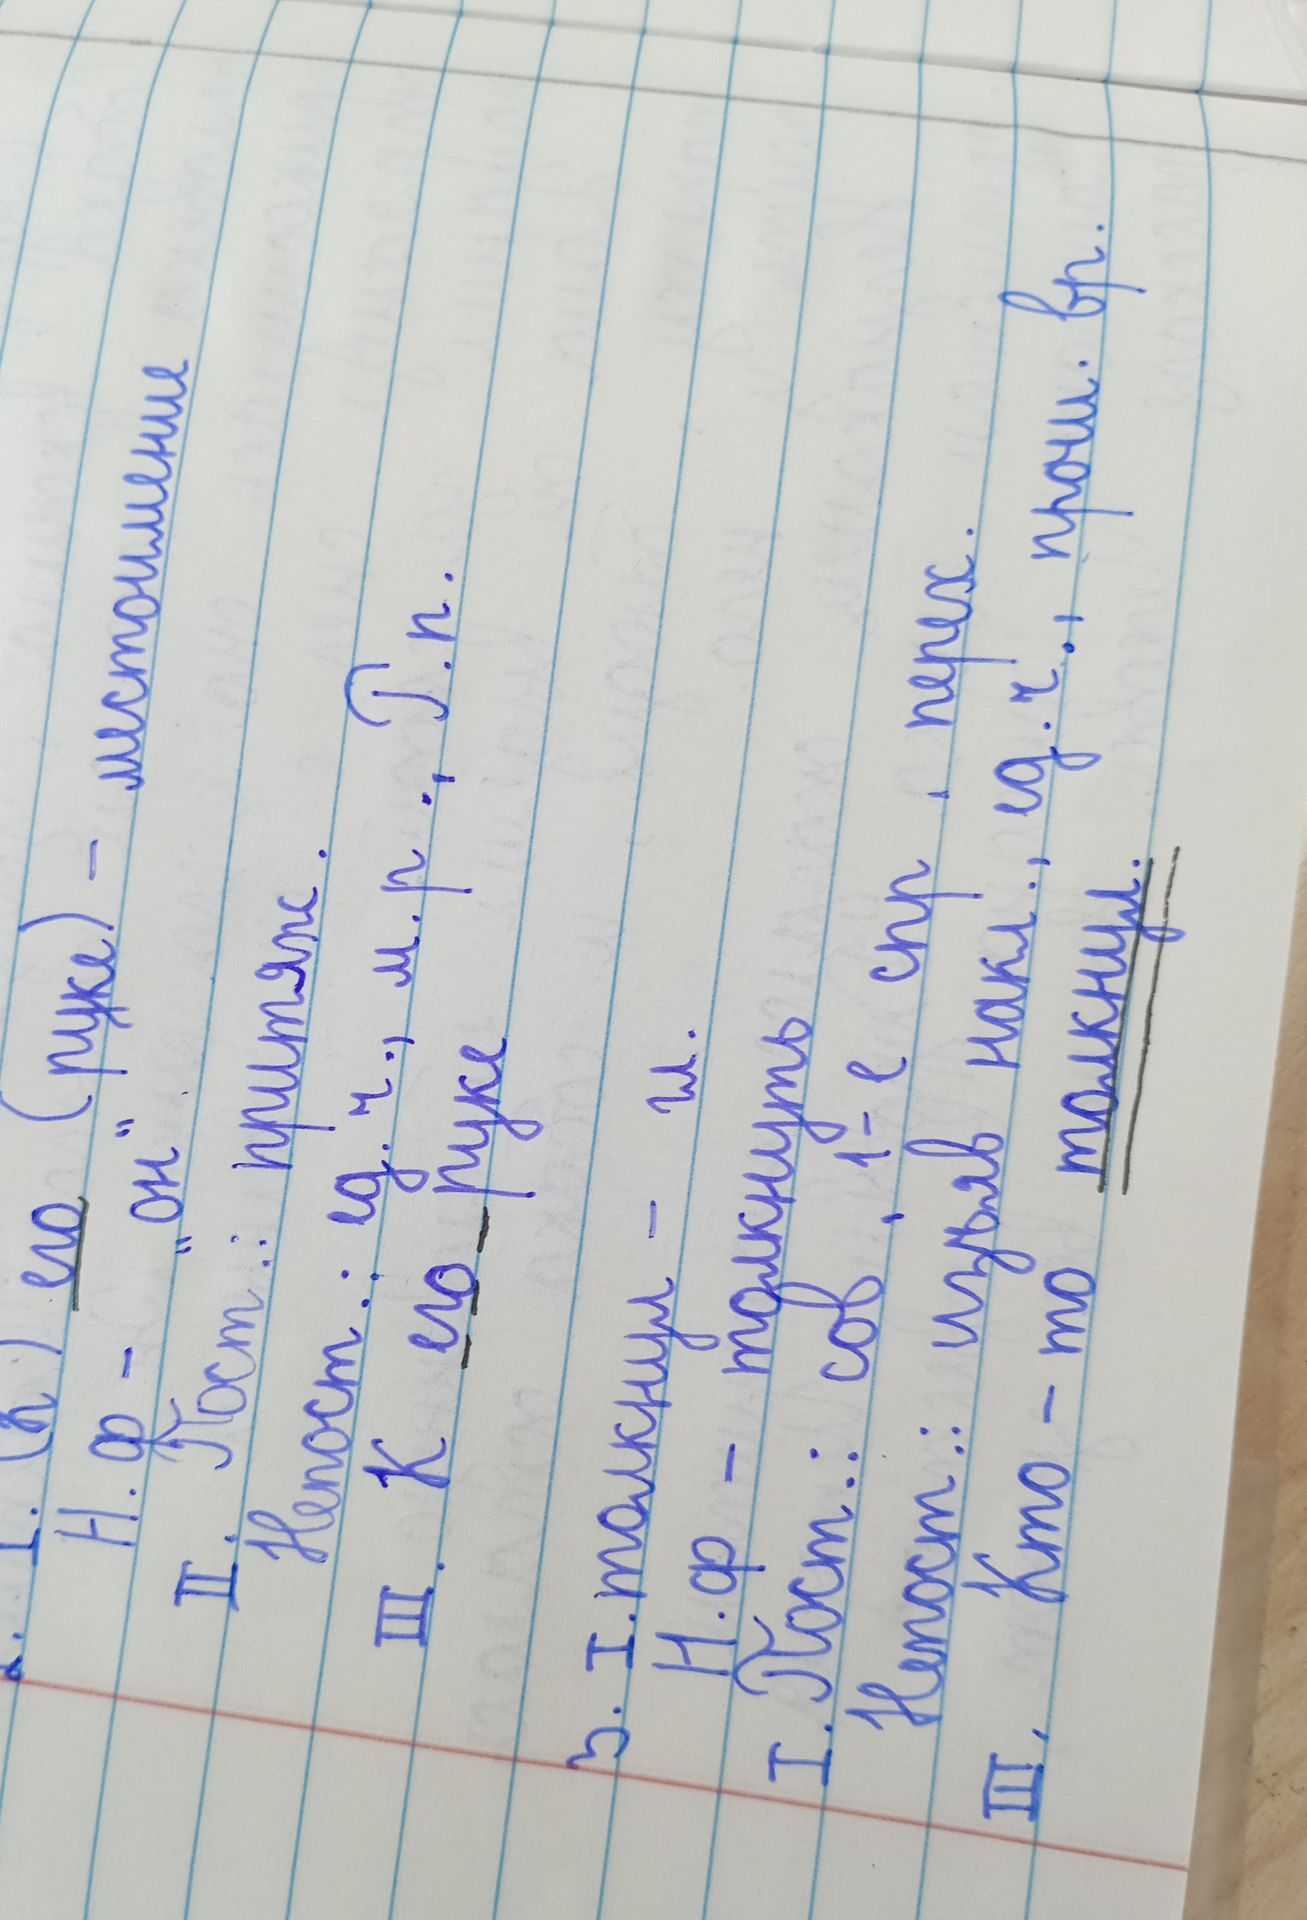 2. I. (к) его (руке) - местоимение
Н. ф - "он"
II. Пост.: притяж.
Непост.: ед. ч., м. р., Т. п.
III. К его руке
3. I. толкнул - гл.
Н. ф - толкнуть
I. Пост.: сов, 1-е спр, перех.
Непост.: изъяв накл., ед. ч., прош. вр.
III. Кто-то толкнул.